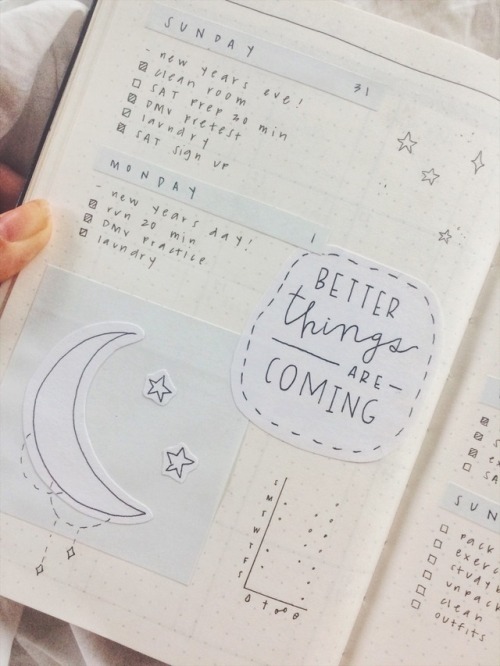 SUNDAY 31
- new years eve!
clean room
SAT prep 20 min
DMV pretest
laundry
SAT sign up
MONDAY 1
- new years day!
run 20 min
DMV practice
laundry
BETTER
things
ARE
COMING
S
M
T
W
T
F
S
SUN
pack
exerc
study
unpac
clean
outfits